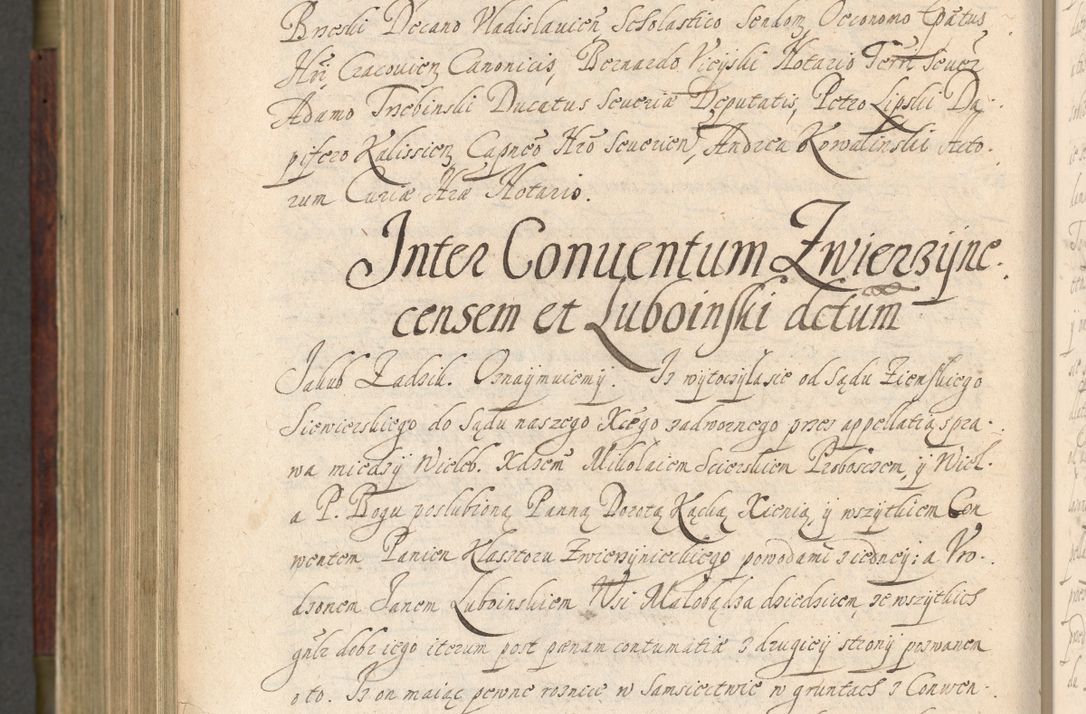 Brzeski Decano Vladislauień Scholastico Sendom̃ Oeconomo Epatus
Nri Cracouień Canonicis, Bernardo Vieyski Notario Terrī Seuerī
Adamo Trzebinski Ducatus Seueriæ Deputatis, Petro Lipski Da-
pifero Kalissień Capneo Nro Seuerień, Andrea Kowalinski Acto-
rum Curiæ Nræ Notario.
Inter Conuentum Zwierzÿne-
censem et Luboinski dctum
Jakub Zadzik. Oznaÿmuiemÿ. Iż wÿtoczÿła sie od Sądu Ziemskiego
Siewierskiego do Sądu naszego Xcego zadwornego przez appellatią spra-
wa międzÿ Wieleb. Xdzem Mikolaiem Scierskiem Proboszczem, ÿ Wiel-
a P. Bogu poslubioną Panną Dorotą Kącką Xienią, ÿ wszÿtkiem Con
wentem Panien Klasztoru Zwierzÿnieckiego powodami z iedneÿ; a Vro-
dzonem Janem Luboinskiem Wsi Małobądza dziedzicem ze wszÿtkich
gnłr dobr iego iterum post pœnam contumatiæ z drugieÿ stronÿ pozwanem
o to. Iż on maiąc pewne roznice w Samsiectwie w gruntach z Conwen-